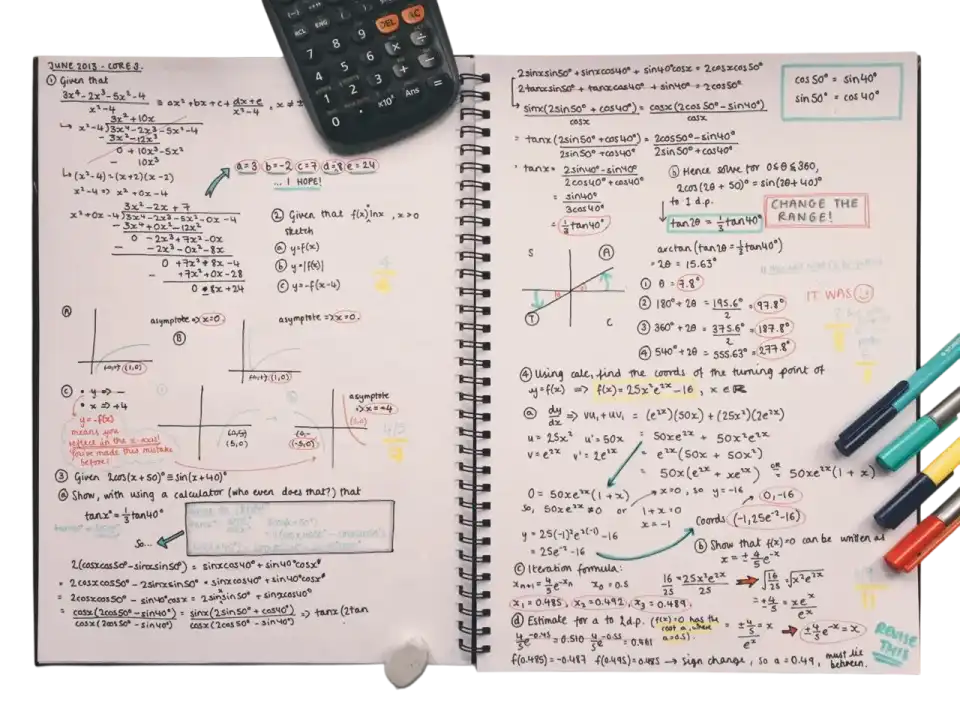 JUNE 2013 - CORE 3.
① Given that
3x⁴ - 2x³ - 5x² - 4
x² - 4
≡ ax² + bx + c + dx + e
x² - 4
, x ≠ ±
3x² + 10x
↳ x² - 4) 3x⁴ - 2x³ - 5x² - 4
3x³ - 12x²
0 + 10x³ - 5x²
- 10x³
↳ (x² - 4) = (x+2)(x-2)
x² - 4 => x² + 0x - 4
a=3 b=-2 c=7 d=8 e=24
... I HOPE!
3x² - 2x + 7
x² + 0x - 4) 3x⁴ - 2x³ - 5x² - 0x - 4
- 3x⁴ + 0x³ - 12x²
0 - 2x³ + 7x² - 0x
- - 2x³ - 0x² - 8x
0 + 7x² + 8x - 4
- + 7x² + 0x - 28
0 + 8x + 24
② Given that f(x) = lnx, x > 0
sketch
ⓐ y = f(x)
ⓑ y = |f(x)|
ⓒ y = -f(x-4)
Ⓐ
asymptote => x = 0.
(1,0)
Ⓑ
asymptote => x = 0.
(1,0)
Ⓒ • y => —
• x => +4
y = -f(x)
means you
reflect in the x-axis!
You've made this mistake
before!
(5,0)
(-5,0)
asymptote
=> x = +4
(5,0)
③ Given 2cos(x+50)° ≡ sin(x+40)°
ⓐ Show, with using a calculator (who even does that?) that
tanx° = ⅓tan40°
So...
2(cosxcos50° - sinxsin50°) = sinxcos40° + sin40°cosx°
= 2cosxcos50° - 2sinxsin50° = sinxcos40° + sin40°cosx°
= 2cosxcos50° - sin40°cosx = 2sinxsin50° + sinxcos40°
= cosx(2cos50° - sin40°) = sinx(2sin50° + cos40°) => tanx(2tan
cosx(2cos50° - sin40°) cosx(2cos50° - sin40°)
2sinxsin50° + sinxcos40° + sin40°cosx = 2cosxcos50°
2tanxsin50° + tanxcos40° + sin40° = 2cos50°
↳ sinx(2sin50° + cos40°) = cosx(2cos50° - sin40°)
cosx cosx
= tanx(2sin50° + cos40°) = 2cos50° - sin40°
2sin50° + cos40° 2sin50° + cos40°
cos50° = sin40°
sin50° = cos40°
tanx = 2sin40° - sin40°
2cos40° + cos40°
= sin40°
3cos40°
= (⅓tan40°)
ⓑ Hence solve for 0 ≤ θ ≤ 360,
2cos(2θ + 50)° = sin(2θ + 40)°
to 1 d.p.
tan2θ = ⅓tan40°
CHANGE THE
RANGE!
S
A
T
C
arctan(tan2θ = ⅓tan40°)
= 2θ = 15.63°
① θ = 7.8°
② 180° + 2θ = 195.6° = 97.8°
2
③ 360° + 2θ = 375.6° = 187.8°
2
④ 540° + 2θ = 555.63° = 277.8°
IT WAS
④ Using calc, find the coords of the turning point of
y = f(x) => f(x) = 25x²e²ˣ - 16, x ∈ ℝ
ⓐ dy => vu, + uv, = (e²ˣ)(50x) + (25x²)(2e²ˣ)
dx
u = 25x² u' = 50x = 50xe²ˣ + 50x²e²ˣ
v = e²ˣ v' = 2e²ˣ = e²ˣ(50x + 50x²)
= 50x(e²ˣ + xe²ˣ) OR 50xe²ˣ(1+x)
0 = 50xe²ˣ(1+x)
x = 0, so y = -16
0, -16
So, 50xe²ˣ = 0 or 1+x = 0
x = -1
Coords: (-1, 25e⁻² - 16)
y = 25(-1)²e²⁽⁻¹⁾ - 16
= 25e⁻² - 16
ⓑ Show that f(x) = 0 can be written as
x = ±⅘e⁻ˣ
ⓒ Iteration formula:
xₙ₊₁ = ⅘e⁻ˣⁿ x₀ = 0.5
x₁ = 0.485, x₂ = 0.492, x₃ = 0.489
16 = 25x²e²ˣ
25 25
√16 √x²e²ˣ
25
= ±4 = xeˣ
5 eˣ
ⓓ Estimate for a to 2 d.p. (f(x) = 0 has the
root a, where
a = 0.5)
= ±⅘ = x
eˣ
±⅘e⁻ˣ = x
f(0.485) = -0.487 f(0.495) = 0.485 → sign change, so a = 0.49, must lie
between.
REVISE
THIS
7 8 9 DEL AC
4 5 6 × ÷
1 2 3 + -
0 . ×10ˣ Ans =